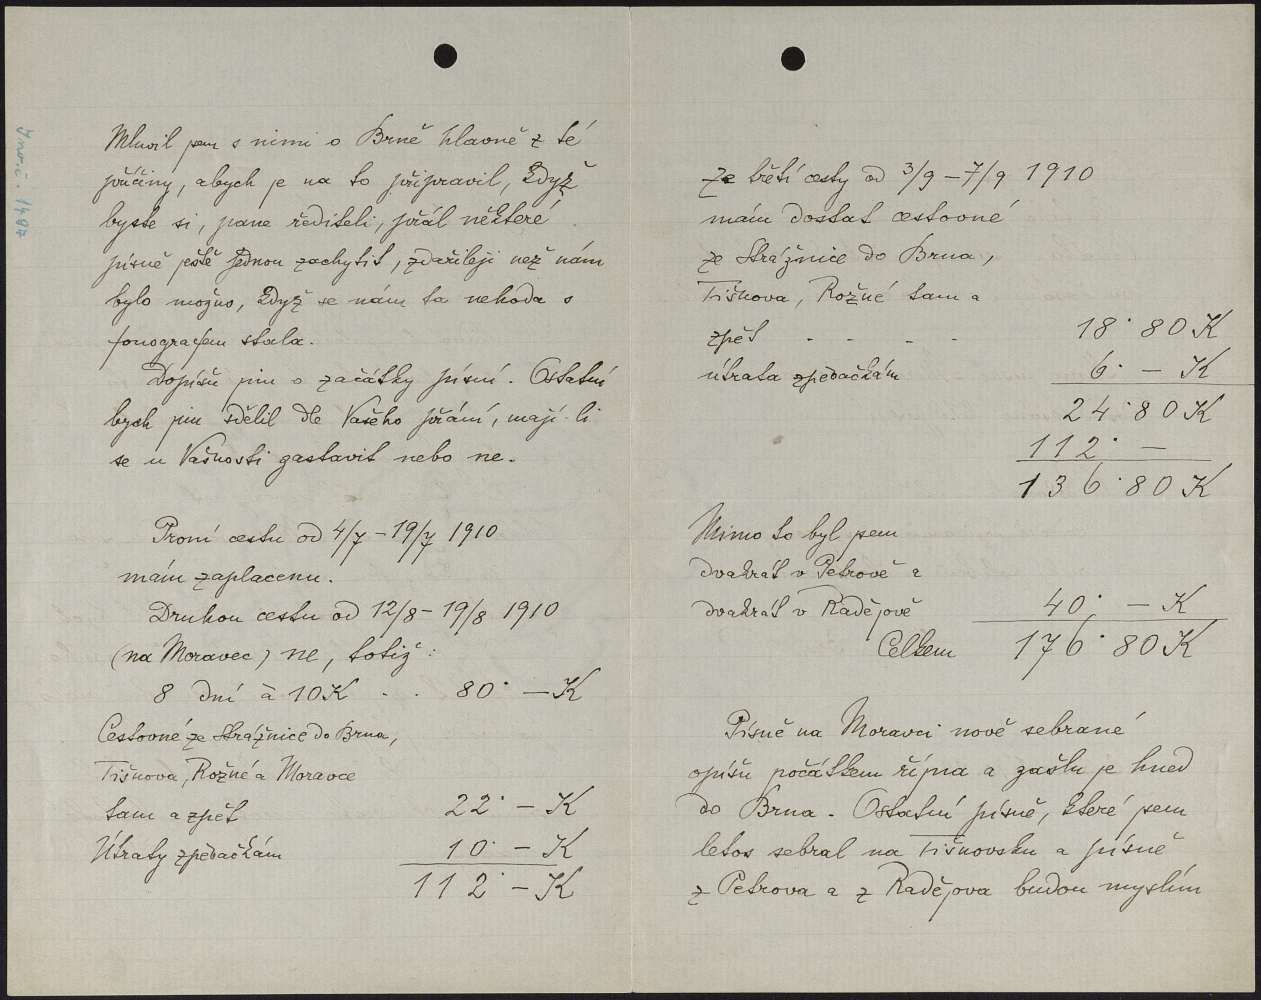 Mluvil jsem s nimi o Brně hlavně z té
příčiny, abych je na to připravil, když
byste si, pane řediteli, přál některé
písně ještě jednou zachytit, zdařileji než nám
bylo možno, když se nám ta nehoda s
fonografem stala.
Dopíšu jim o začátky písní. Ostatní
bych jim sdělil dle Vašeho přání, mají-li
se u Vašnosti zastavit nebo ne.
První cestu od 4/7 – 19/7 1910
mám zaplacenu.
Druhou cestu od 12/8 – 19/8 1910
(na Moravec) ne, totiž:
8 dní à 10 K . . 80· – K
Cestovné ze Strážnice do Brna,
Tišnova, Rožné a Moravce
tam a zpět 22· – K
Útraty zpěvačkám 10· – K
112· – K
Inv. č. 1487
Ze třetí cesty od 3/9 – 7/9 1910
mám dostat cestovné
ze Strážnice do Brna,
Tišnova, Rožné tam a
zpět . . . . 18·80 K
útrata zpěvačkám 6· – K
24·80 K
112· –
136·80 K
Mimo to byl jsem
dvakrát v Petrově a
dvakrát v Radějově 40· – K
Celkem 176·80 K
Písně na Moravci nově sebrané
opíšu počátkem října a zašlu je hned
do Brna. Ostatní písně, které jsem
letos sebral na Tišnovsku a písně
z Petrova a z Radějova budou myslím